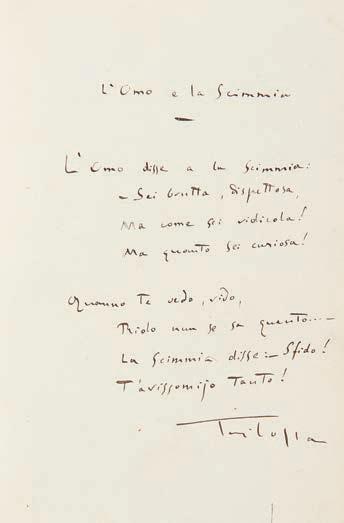 L'Omo e la Scimmia
L'Omo disse a la Scimmia:
– Sei brutta, dispettosa,
Ma come sei ridicola!
Ma quanto sei curiosa!
Quanno te vedo, rido,
Rido nun se sa quanto....
La Scimmia disse: – Sfido!
T'arissomijo tanto!
Trilussa